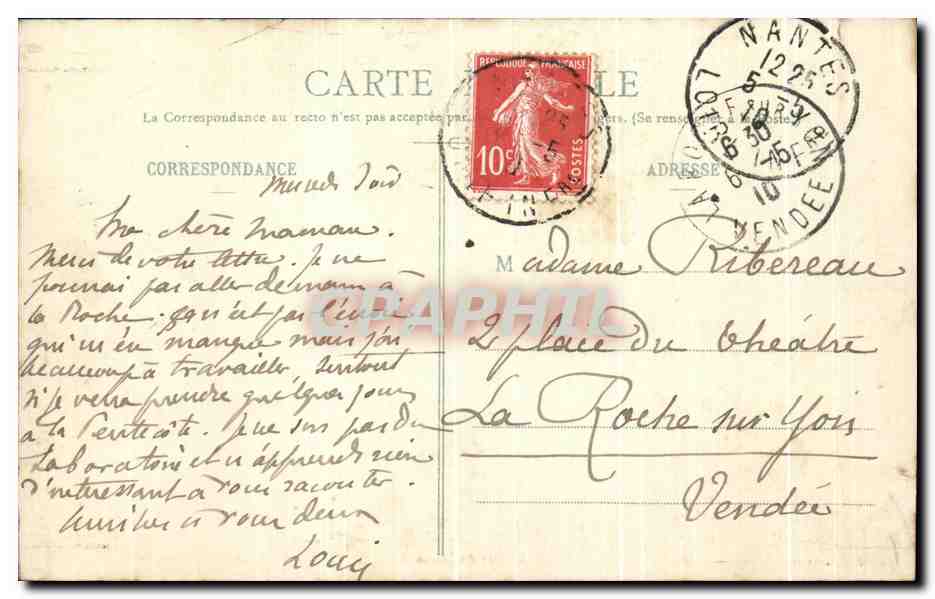 CARTE POSTALE
La Correspondance au recto n'est pas acceptée par (Se renseigner à la Poste)
CORRESPONDANCE
ADRESSE
REPUBLIQUE FRANÇAISE
10 c
POSTES
NANTES
12 25
5 - 5
10
LOIRE INFRE
LA ROCHE SUR YON
6 30
6 - 5
10
VENDEE
soir
Ma chère Maman.
Merci de votre lettre. Je ne
pourrai pas aller demain à
la Roche. Ce n'est pas l'envie
qui m'en manque mais j'ai
beaucoup à travailler, surtout
si je veux prendre quelques jours
à la Pentecôte. Je ne sors pas du
Laboratoire et n'apprends rien
d'intéressant à vous raconter.
à vous deux
Louis
Madame Ribereau
2 place du théâtre
La Roche sur Yon
Vendée
CPAPHIL